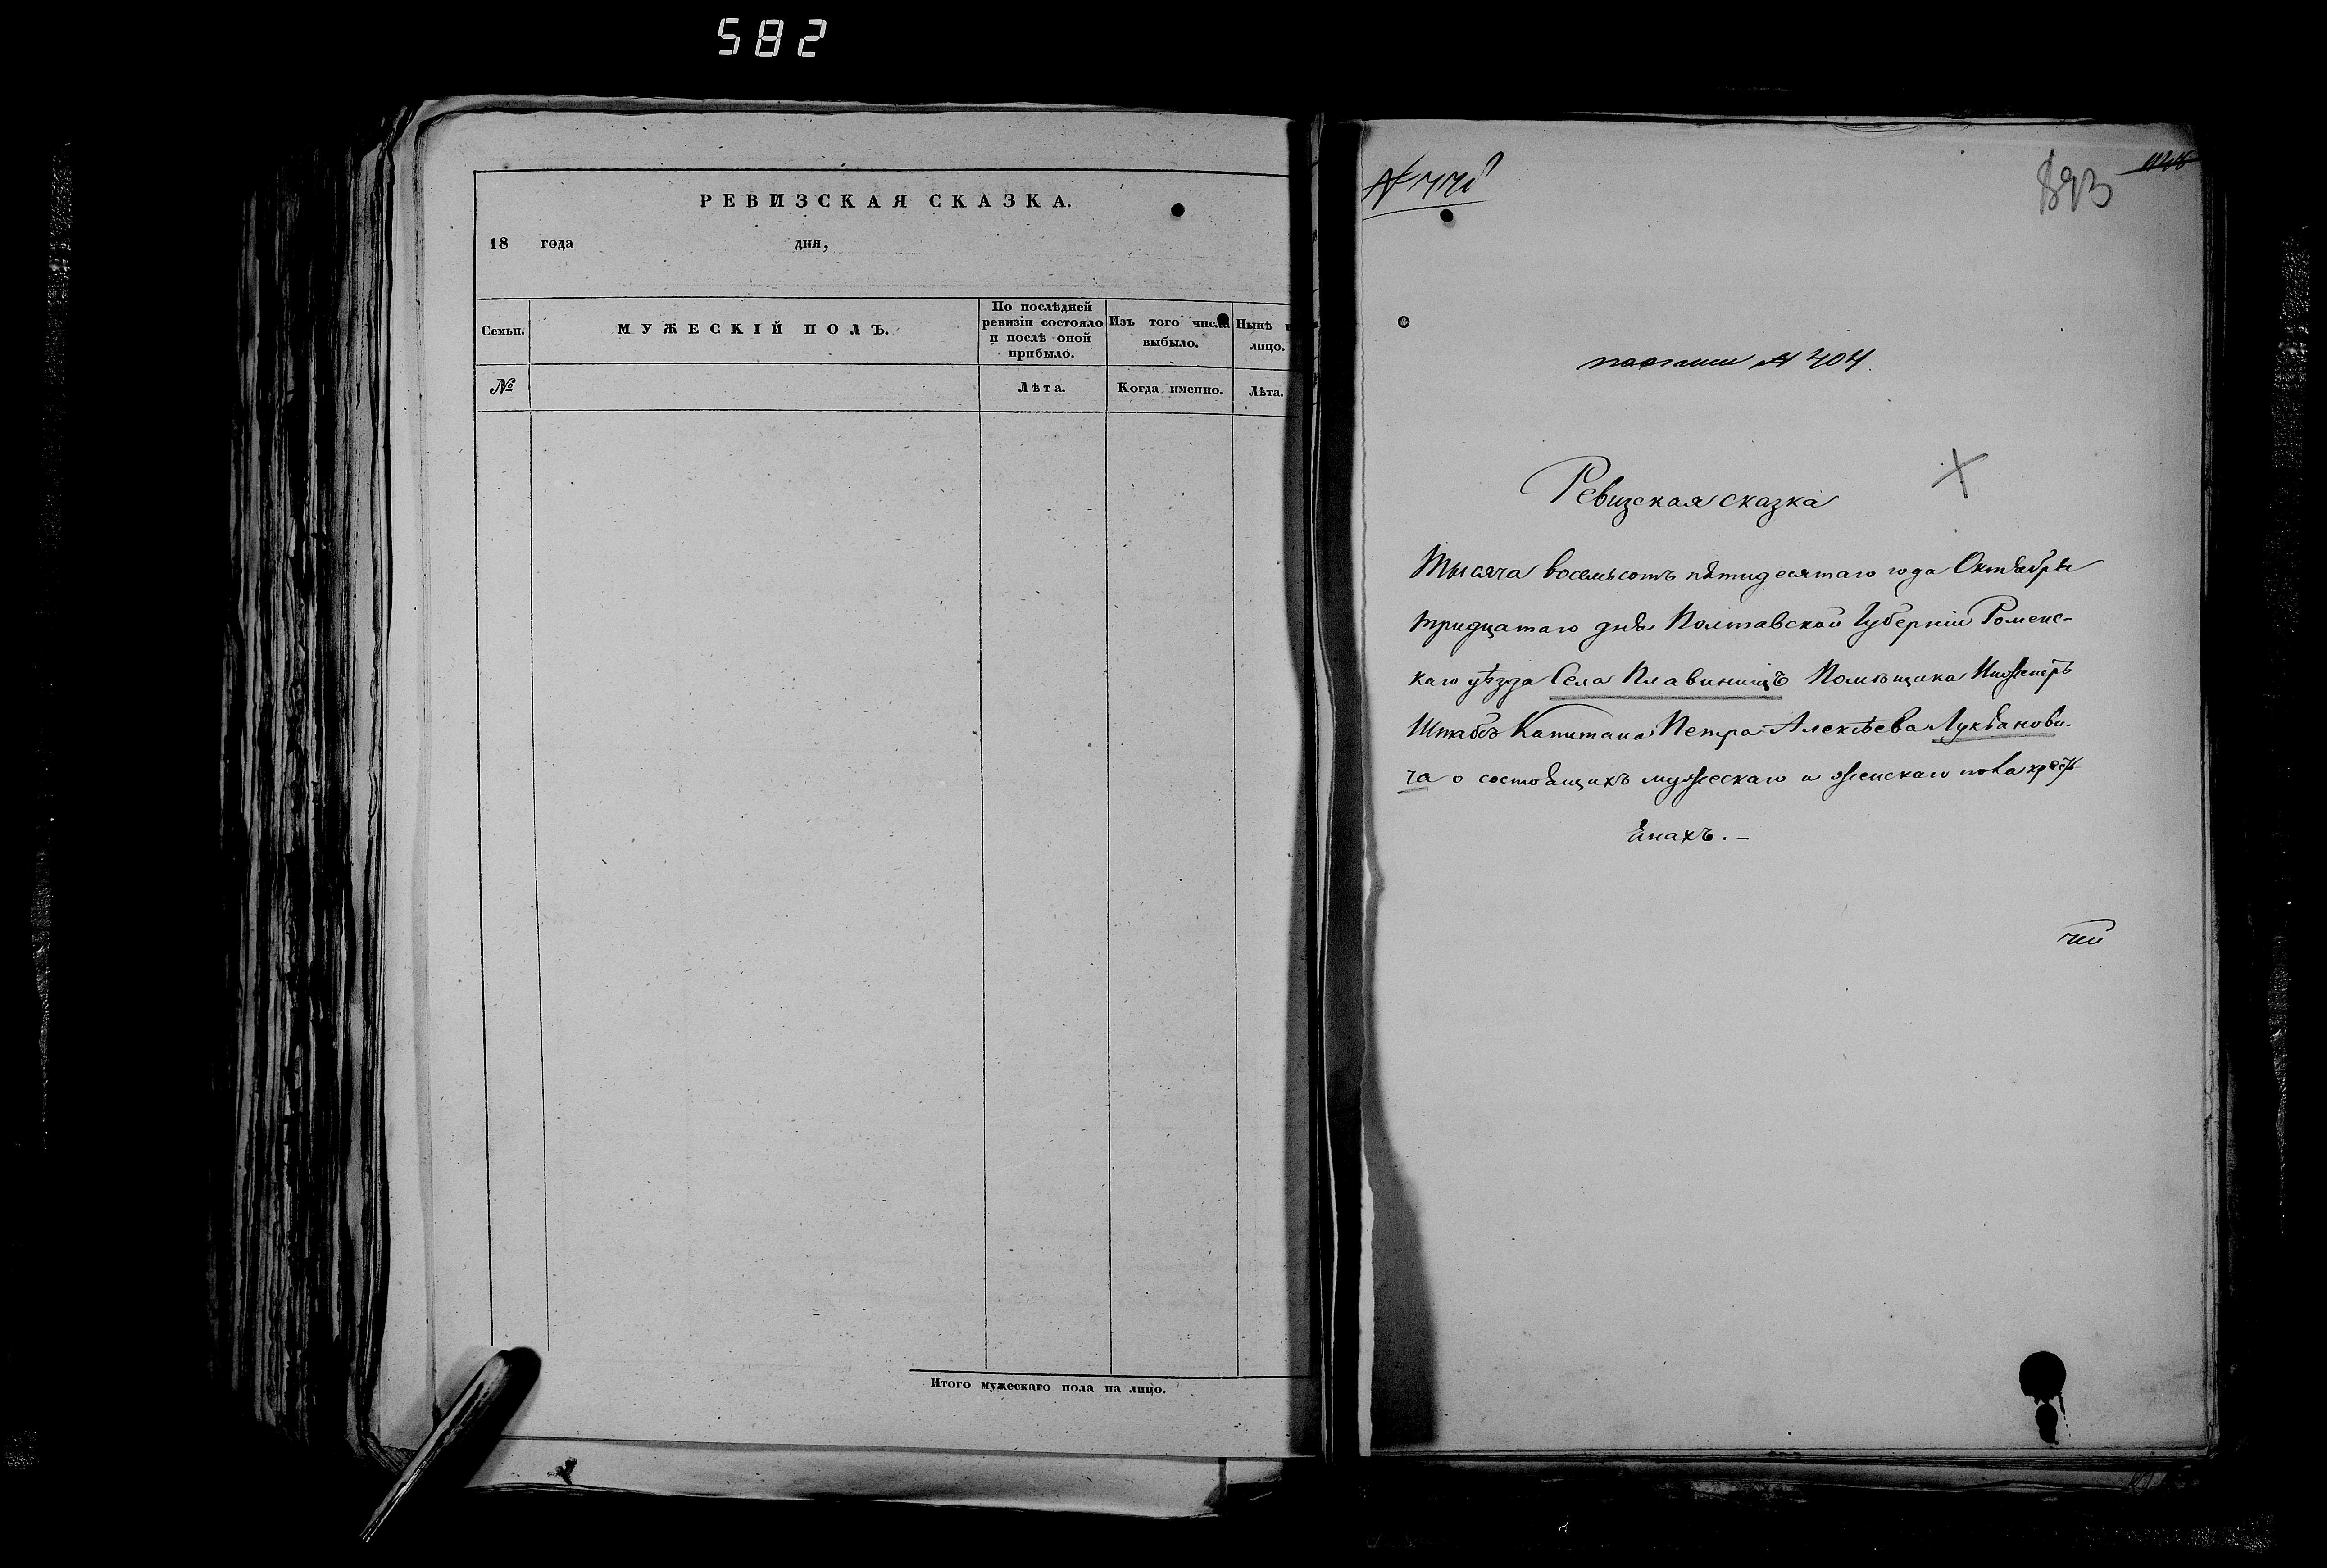 582
РЕВИЗСКАЯ СКАЗКА.
18 года дня,
Семьи.
МУЖЕСКІЙ ПОЛЪ.
По послѣдней
ревизіи состояло
и послѣ оной
прибыло.
Изъ того числа
выбыло.
Нынѣ
лицо.
№
Лѣта.
Когда именно.
Лѣта.
Итого мужескаго пола на лицо.
893
№ 404
Ревизская сказка
Тысяча восемьсотъ пятидесятаго года Октября
тридцатаго дня Полтавской Губерніи Роменс-
каго уѣзда Села Плавинищъ Помѣщика Инженеръ
Штабсъ Капитана Петра Алексѣева Лукьянови-
ча о состоящихъ мужескаго и женскаго пола кресть
янахъ. –